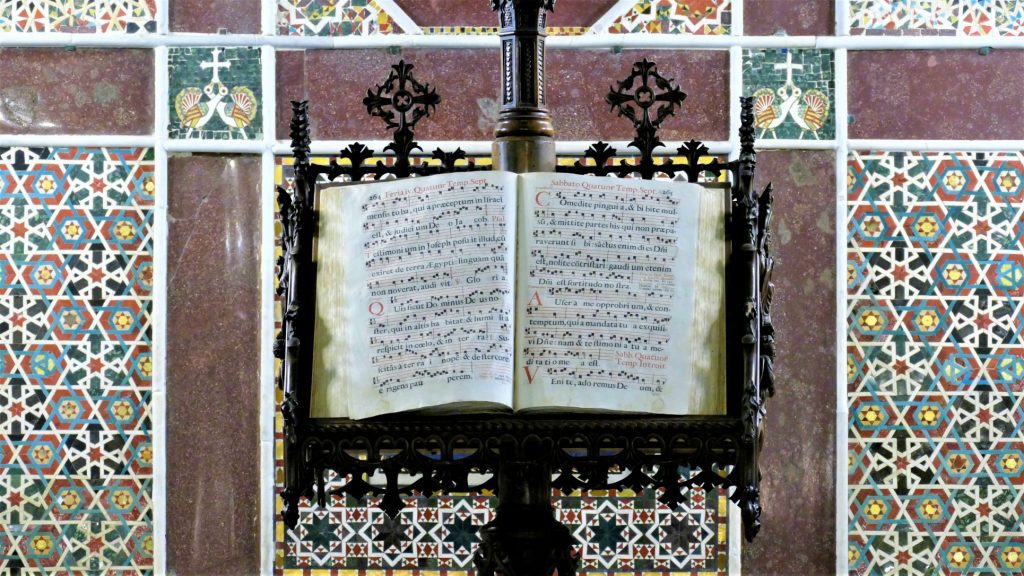 264 Feria iv. Quatuor Temp. Sept.
mensis tuba, qui a præceptum in Israel
est, & judicium De o Ja cob. Psal
testimonium in Joseph posuit illud, cũ
exiret de terra Ægypti: linguam quã
non noverat, audi vit. ℣ Glo ri a
Quis sicut Do minus De us no
ster, qui in altis ha bitat: & humi lia
respicit in cœlo, & in ter ra? Su
citãs a ter ra nope & de stercore
e rigens pau perem.
Sabbato Quatuor Temp. Sept. 265
Comedite pingui a, & bi bite mul
sũ, & mittite partes his qui non præpa
raverunt si bi: sãctus enim di es Dñi
est, nolite cõtristari: gaudi um etenim
Dñi est fortitudo no stra.
AUfer a me opprobri um, & con
temptum, qui a mandata tu a exquisi
vi Dñe: nam & testimoni a tu a me
di ta ti o me a est. Sabb. Quatuor
Temp. Introit.
VEni te, ado remus De um, &